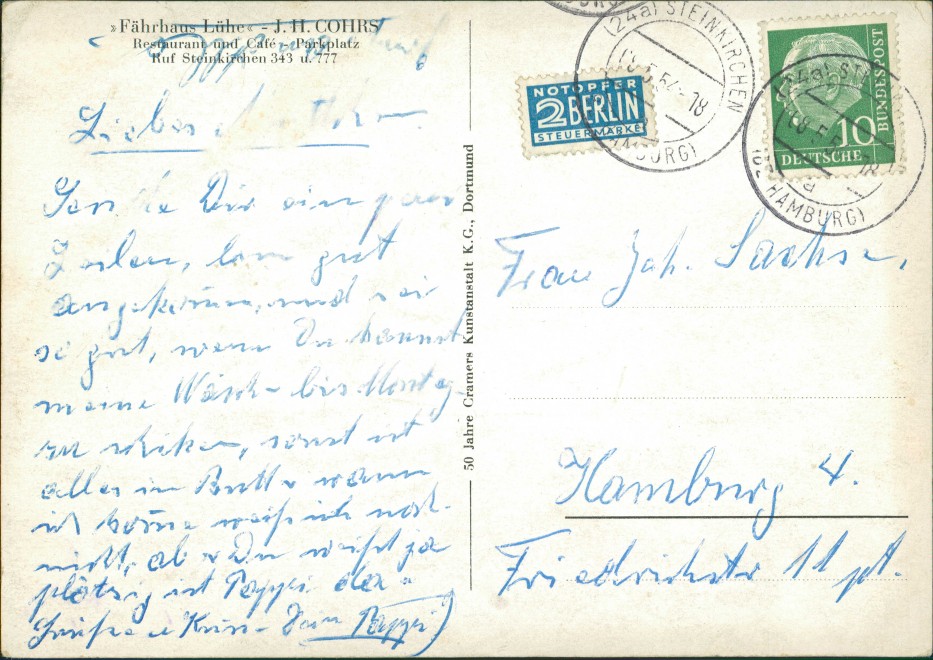 »Fährhaus Lühe« - J. H. COHRS
Restaurant und Café - Parkplatz
Ruf Steinkirchen 343 u. 777
Liebes
Sende Dir ein paar
Zeilen, bin gut
angekommen, und sei
so gut, wenn Du kannst
meine Wäsche bis Montag
zu schiken, sonst ist
alles in Butter wann
ich komme weiß ich noch
nicht, aber Du weißt ja
plötzig ist Pappi da
Grüße u Kuss Dein Pappi
50 Jahre Cramers Kunstanstalt K.G., Dortmund
NOTOPFER
2 BERLIN
STEUERMARKE
(24a) STEINKIRCHEN
18.5.54-18
HAMBURG)
10
DEUTSCHE
BUNDESPOST
(24a) ST
a
HAMBURG)
Frau Joh. Sachse,
Hamburg 4.
Friedrichstr 11 pt.